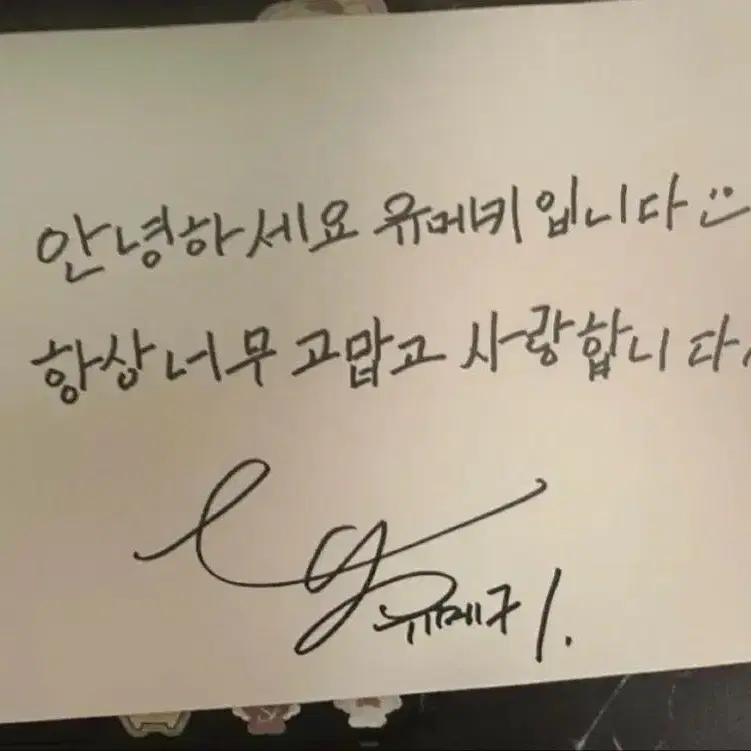 안녕하세요 유메키입니다
항상 너무 고맙고 사랑합니다
유메키